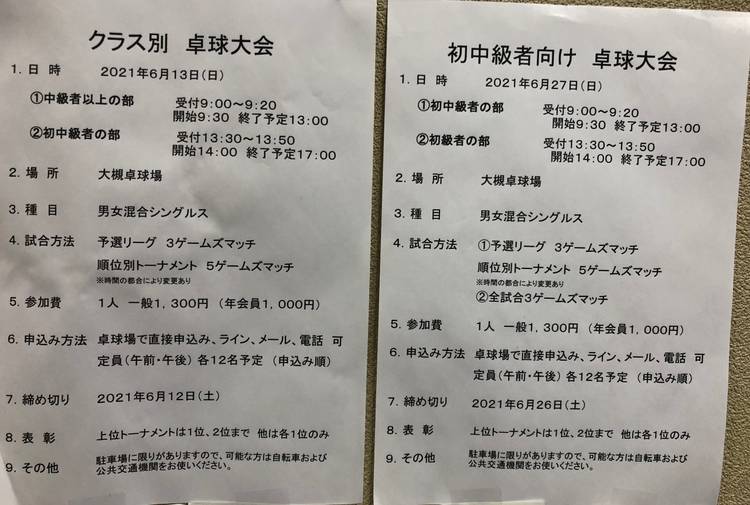 クラス別 卓球大会
1. 日 時 2021年6月13日(日)
①中級者以上の部 受付9:00～9:20
開始9:30 終了予定13:00
②初中級者の部 受付13:30～13:50
開始14:00 終了予定17:00
2. 場 所 大槻卓球場
3. 種 目 男女混合シングルス
4. 試合方法 予選リーグ 3ゲームズマッチ
順位別トーナメント 5ゲームズマッチ
※時間の都合により変更あり
5. 参加費 1人 一般1,300円 (年会員1,000円)
6. 申込み方法 卓球場で直接申込み、ライン、メール、電話 可
定員(午前・午後) 各12名予定 (申込み順)
7. 締め切り 2021年6月12日(土)
8. 表 彰 上位トーナメントは1位、2位まで 他は各1位のみ
9. その他 駐車場に限りがありますので、可能な方は自転車および
公共交通機関をお使いください。
初中級者向け 卓球大会
1. 日 時 2021年6月27日(日)
①初中級者の部 受付9:00～9:20
開始9:30 終了予定13:00
②初級者の部 受付13:30～13:50
開始14:00 終了予定17:00
2. 場 所 大槻卓球場
3. 種 目 男女混合シングルス
4. 試合方法 ①予選リーグ 3ゲームズマッチ
順位別トーナメント 5ゲームズマッチ
※時間の都合により変更あり
②全試合3ゲームズマッチ
5. 参加費 1人 一般1,300円 (年会員1,000円)
6. 申込み方法 卓球場で直接申込み、ライン、メール、電話 可
定員(午前・午後) 各12名予定 (申込み順)
7. 締め切り 2021年6月26日(土)
8. 表 彰 上位トーナメントは1位、2位まで 他は各1位のみ
9. その他 駐車場に限りがありますので、可能な方は自転車および
公共交通機関をお使いください。